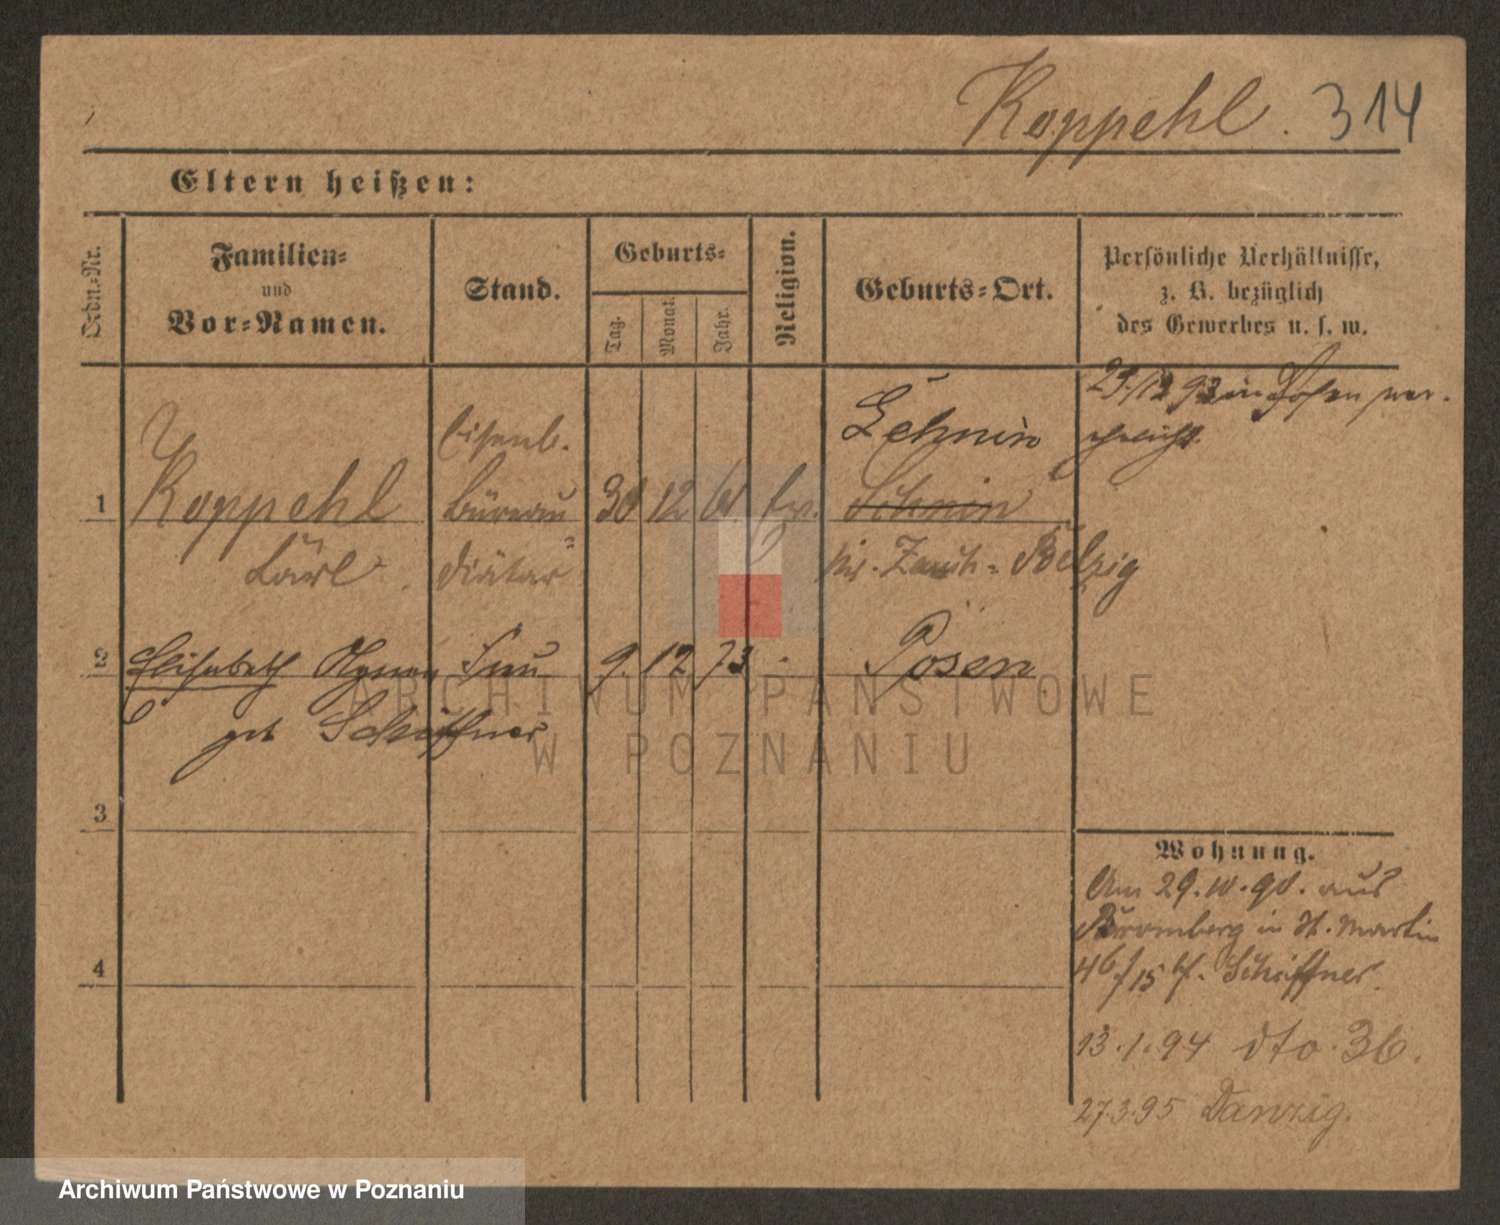 Koppehl. 314
Eltern heißen:
Ordn.-Nr.
Familien-
und
Vor-Namen.
Stand.
Geburts-
Tag.
Monat.
Jahr.
Religion.
Geburts-Ort.
Persönliche Verhältnisse,
z. B. bezüglich
des Gewerbes u. s. w.
29/12 93 in Posen ver-
ehelicht
Lehnin
Eisenb.
1 Koppehl Büreau 30 12 61 Ev. Lehnin
Carl Diätar Kr. Zauch-Belzig
2 Elisabeth Frau 9. 12 73 - Posen
geb Scheffner
3
4
Wohnung.
Am 29.10.90. aus
Bromberg in St. Martin
46/15 bf. Scheffner.
13.1.94 dto. 36.
27.3.95 Danzig.
ARCHIWUM PAŃSTWOWE
W POZNANIU
Archiwum Państwowe w Poznaniu